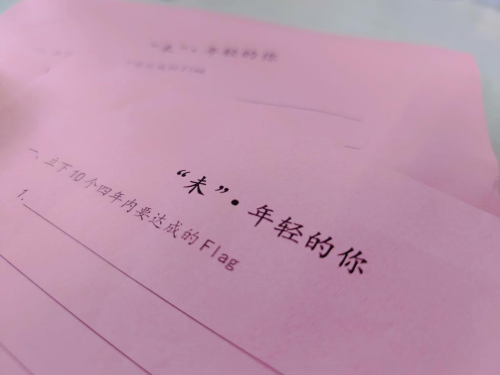 “未”·年轻的你
一、立下10个四年内要达成的Flag
1.
“未”·年轻的你